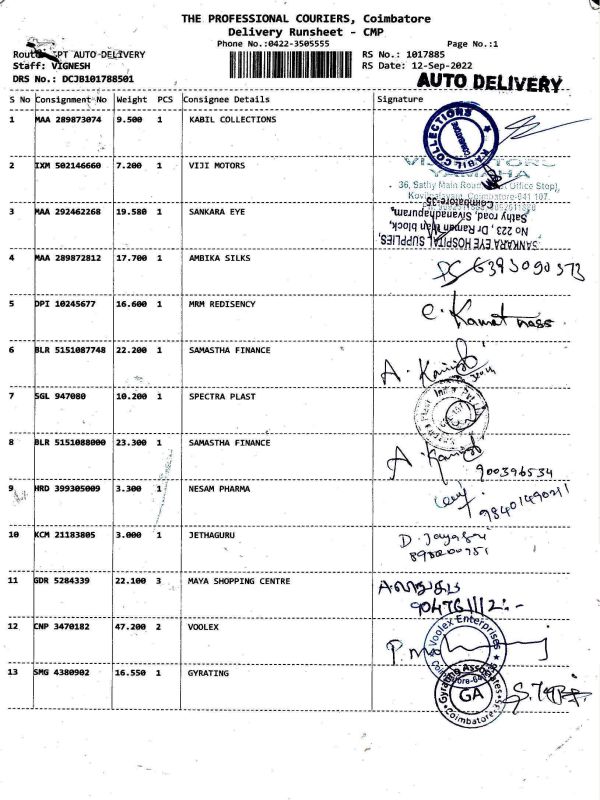 THE PROFESSIONAL COURIERS, Coimbatore
Delivery Runsheet - CMP
Phone No.:0422-3505555
Page No.:1
PT AUTO DELIVERY
RS No.: 1017885
Staff: VIGNESH
RS Date: 12-Sep-2022
DRS No.: DCJB101788501
AUTO DELIVERY
S No Consignment No Weight PCS Consignee Details Signature
1 MAA 289873074 9.500 1 KABIL COLLECTIONS
KABIL COLLECTIONS
COIMBATORE
2 IXM 502146660 7.200 1 VIJI MOTORS
YAMAHA
36, Sathy Main Road, Office Stop),
Coimbatore-641 107.
3 MAA 292462268 19.580 1 SANKARA EYE
SANKARA EYE HOSPITAL SUPPLIES,
No 223 Dr Raman block,
Sathy road, Sivanadhapuram,
Coimbatore-35
4 MAA 289872812 17.700 1 AMBIKA SILKS
6393090373
5 DPI 10245677 16.600 1 MRM REDISENCY
6 BLR 5151087748 22.200 1 SAMASTHA FINANCE
7 SGL 947080 10.200 1 SPECTRA PLAST
8 BLR 5151088000 23.300 1 SAMASTHA FINANCE
900396534
9 HRD 399305009 3.300 1 NESAM PHARMA
10 KCM 21183805 3.000 1 JETHAGURU
D. Jayasri
11 GDR 5284339 22.100 3 MAYA SHOPPING CENTRE
12 CNP 3470182 47.200 2 VOOLEX
Voolex Enterprises
13 SMG 4380902 16.550 1 GYRATING
Gyrating Associates
GA
Coimbatore